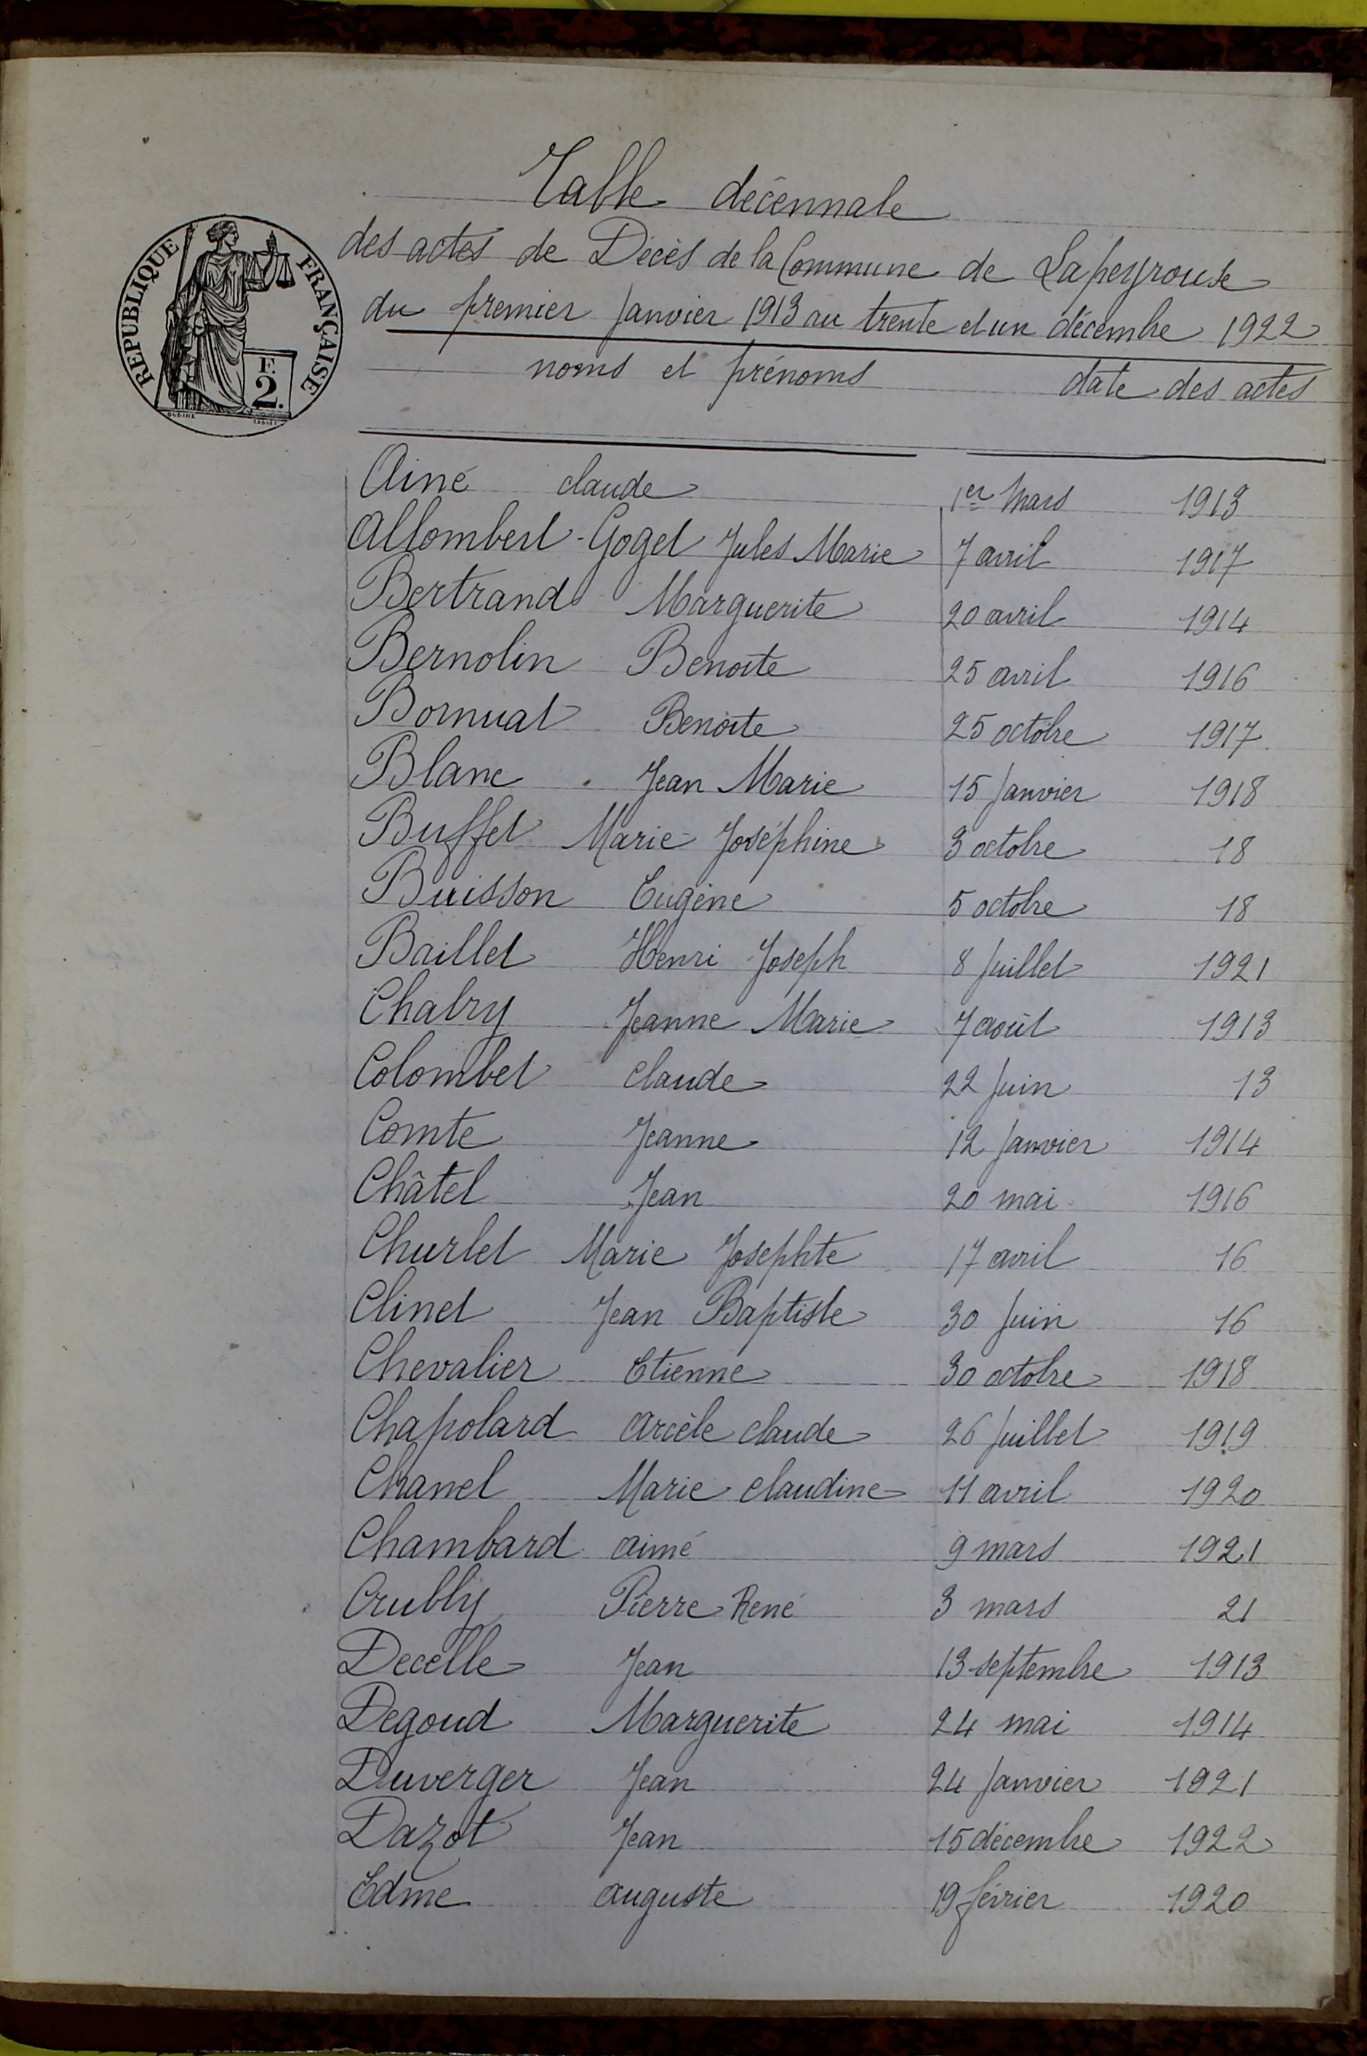 Table décennale
des actes de Décès de la Commune de Lapeyrouse
du premier Janvier 1913 au trente et un décembre 1922
RÉPUBLIQUE FRANÇAISE
F.
2.
noms et prénoms date des actes
Ainé claude 1er Mars 1913
Allombert-Goget Jules Marie 7 avril 1917
Bertrand Marguerite 20 avril 1914
Bernolin Benoite 25 avril 1916
Bornuat Benoite 25 octobre 1917
Blanc Jean Marie 15 Janvier 1918
Buffet Marie Joséphine 3 octobre 18
Buisson Eugène 5 octobre 18
Baillet Henri Joseph 8 Juillet 1921
Chabry Jeanne Marie 7 août 1913
Colombet claude 22 Juin 13
Comte Jeanne 12 Janvier 1914
Châtel Jean 20 mai 1916
Churlet Marie Josephte 17 avril 16
Clinet Jean Baptiste 30 Juin 16
Chevalier Etienne 30 octobre 1918
Chapolard arcèle claude 26 Juillet 1919
Chanel Marie claudine 11 avril 1920
Chambard aimé 9 mars 1921
Crubly Pierre René 3 mars 21
Decelle Jean 13 septembre 1913
Degoud Marguerite 24 mai 1914
Duverger Jean 24 Janvier 1921
Dazot Jean 15 décembre 1922
Edme auguste 19 février 1920